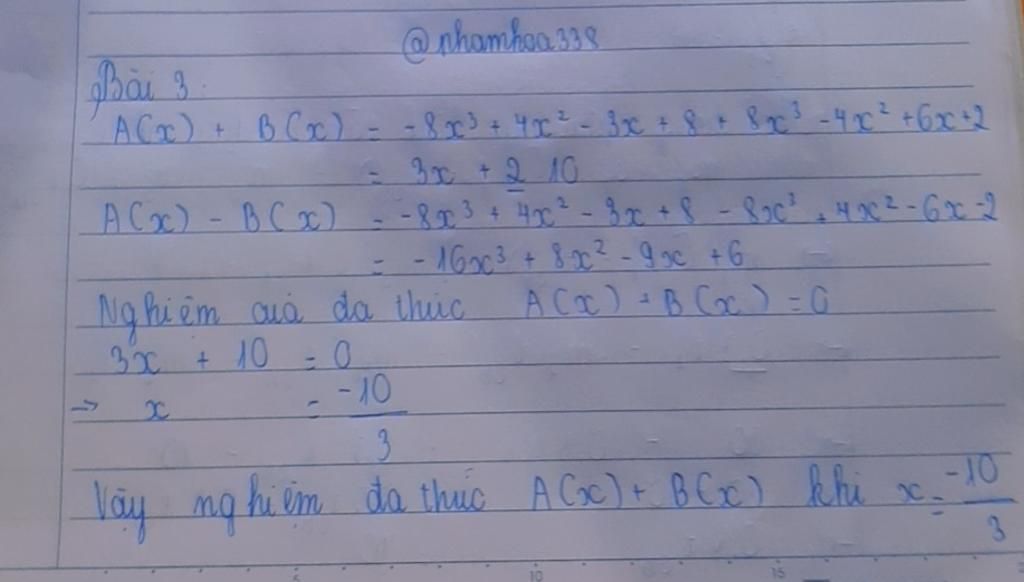 @nhamhoa338
Bài 3:
A(x) + B(x) = -8x³ + 4x² - 3x + 8 + 8x³ - 4x² + 6x + 2
= 3x + 2 10
A(x) - B(x) = -8x³ + 4x² - 3x + 8 - 8x³ + 4x² - 6x - 2
= -16x³ + 8x² - 9x + 6
Nghiệm quả đa thức A(x) + B(x) = 0
3x + 10 = 0
→ x = -10/3
Vậy nghiệm đa thức A(x) + B(x) khi x = -10/3
5 10 15